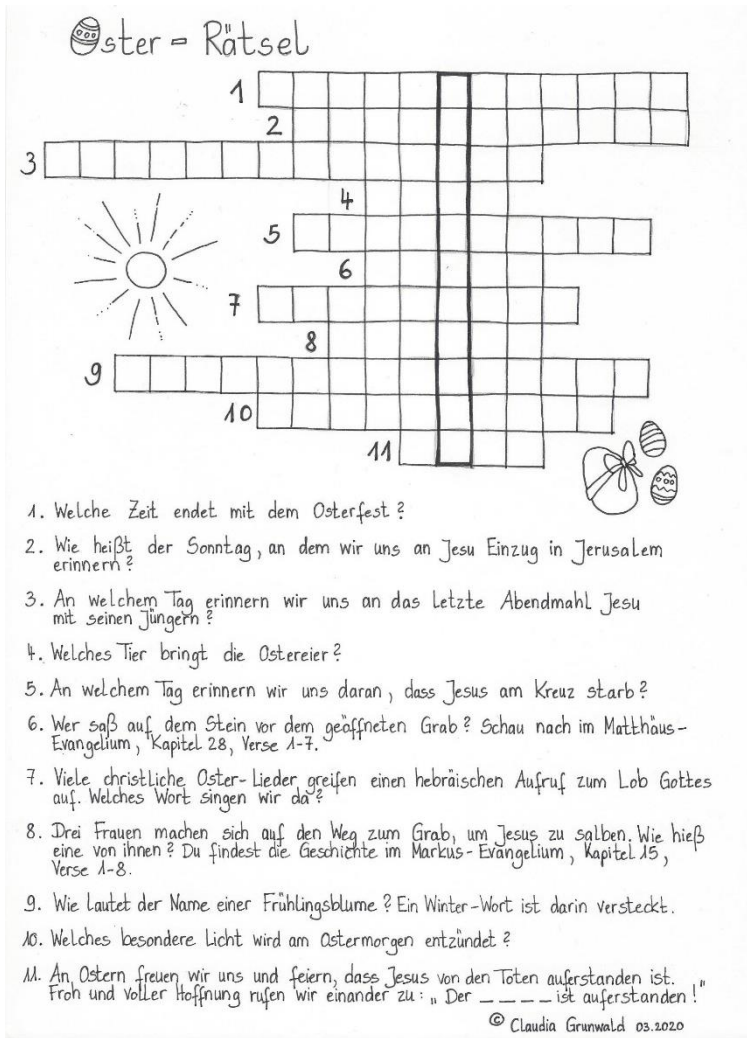 Oster - Rätsel
1
2
3
4
5
6
7
8
9
10
11
1. Welche Zeit endet mit dem Osterfest?
2. Wie heißt der Sonntag, an dem wir uns an Jesu Einzug in Jerusalem
erinnern?
3. An welchem Tag erinnern wir uns an das letzte Abendmahl Jesu
mit seinen Jüngern?
4. Welches Tier bringt die Ostereier?
5. An welchem Tag erinnern wir uns daran, dass Jesus am Kreuz starb?
6. Wer saß auf dem Stein vor dem geöffneten Grab? Schau nach im Matthäus-
Evangelium, Kapitel 28, Verse 1-7.
7. Viele christliche Oster-Lieder greifen einen hebräischen Aufruf zum Lob Gottes
auf. Welches Wort singen wir da?
8. Drei Frauen machen sich auf den Weg zum Grab, um Jesus zu salben. Wie hieß
eine von ihnen? Du findest die Geschichte im Markus-Evangelium, Kapitel 15,
Verse 1-8.
9. Wie lautet der Name einer Frühlingsblume? Ein Winter-Wort ist darin versteckt.
10. Welches besondere Licht wird am Ostermorgen entzündet?
11. An Ostern freuen wir uns und feiern, dass Jesus von den Toten auferstanden ist.
Froh und voller Hoffnung rufen wir einander zu: „Der _ _ _ _ ist auferstanden!"
© Claudia Grunwald 03.2020